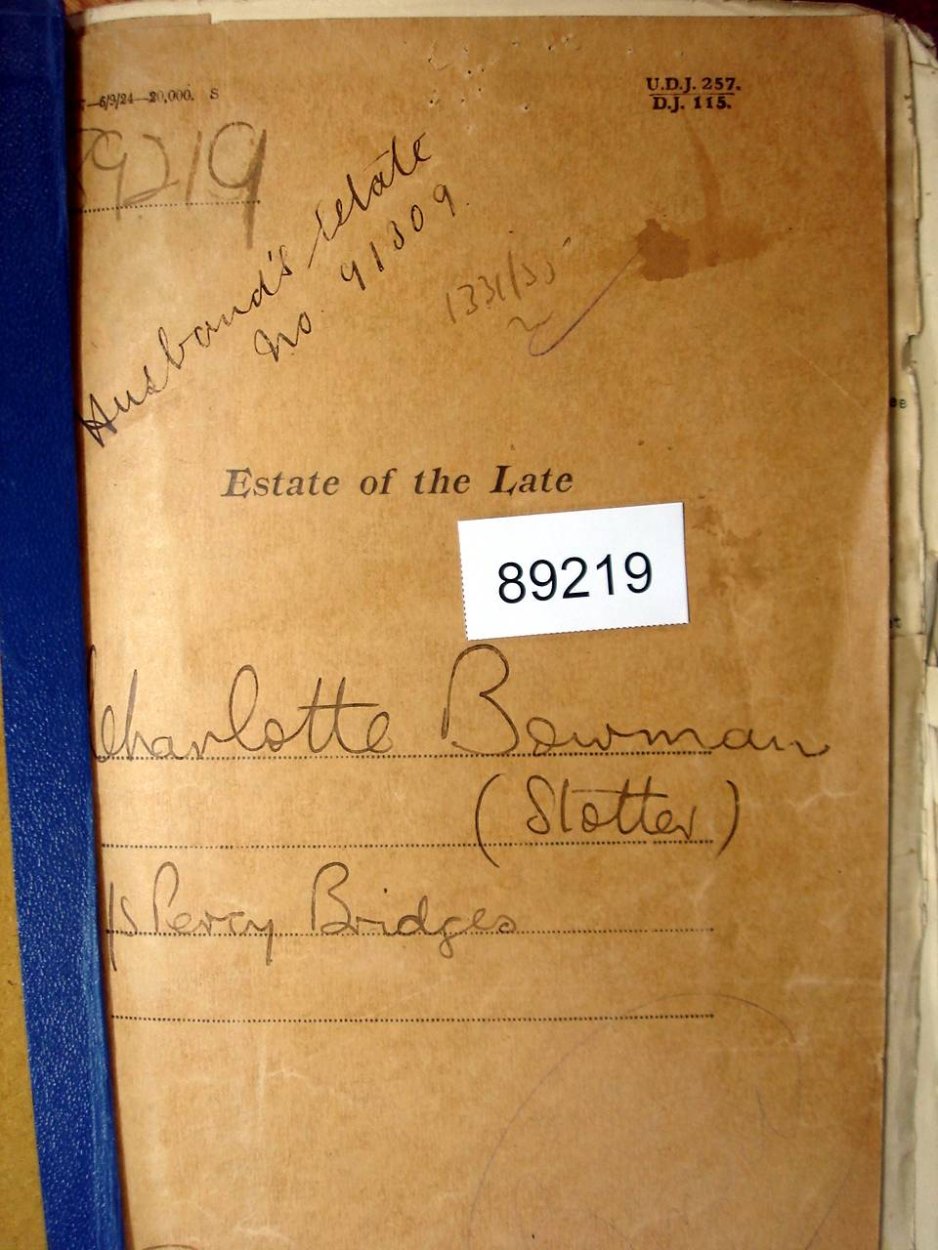 —6/9/24—20,000. S
U.D.J. 257.
D.J. 115.
89219
Husband's estate
no 91309.
1331/35
Estate of the Late
89219
Charlotte Bowman
(Slotter)
Percy Bridges